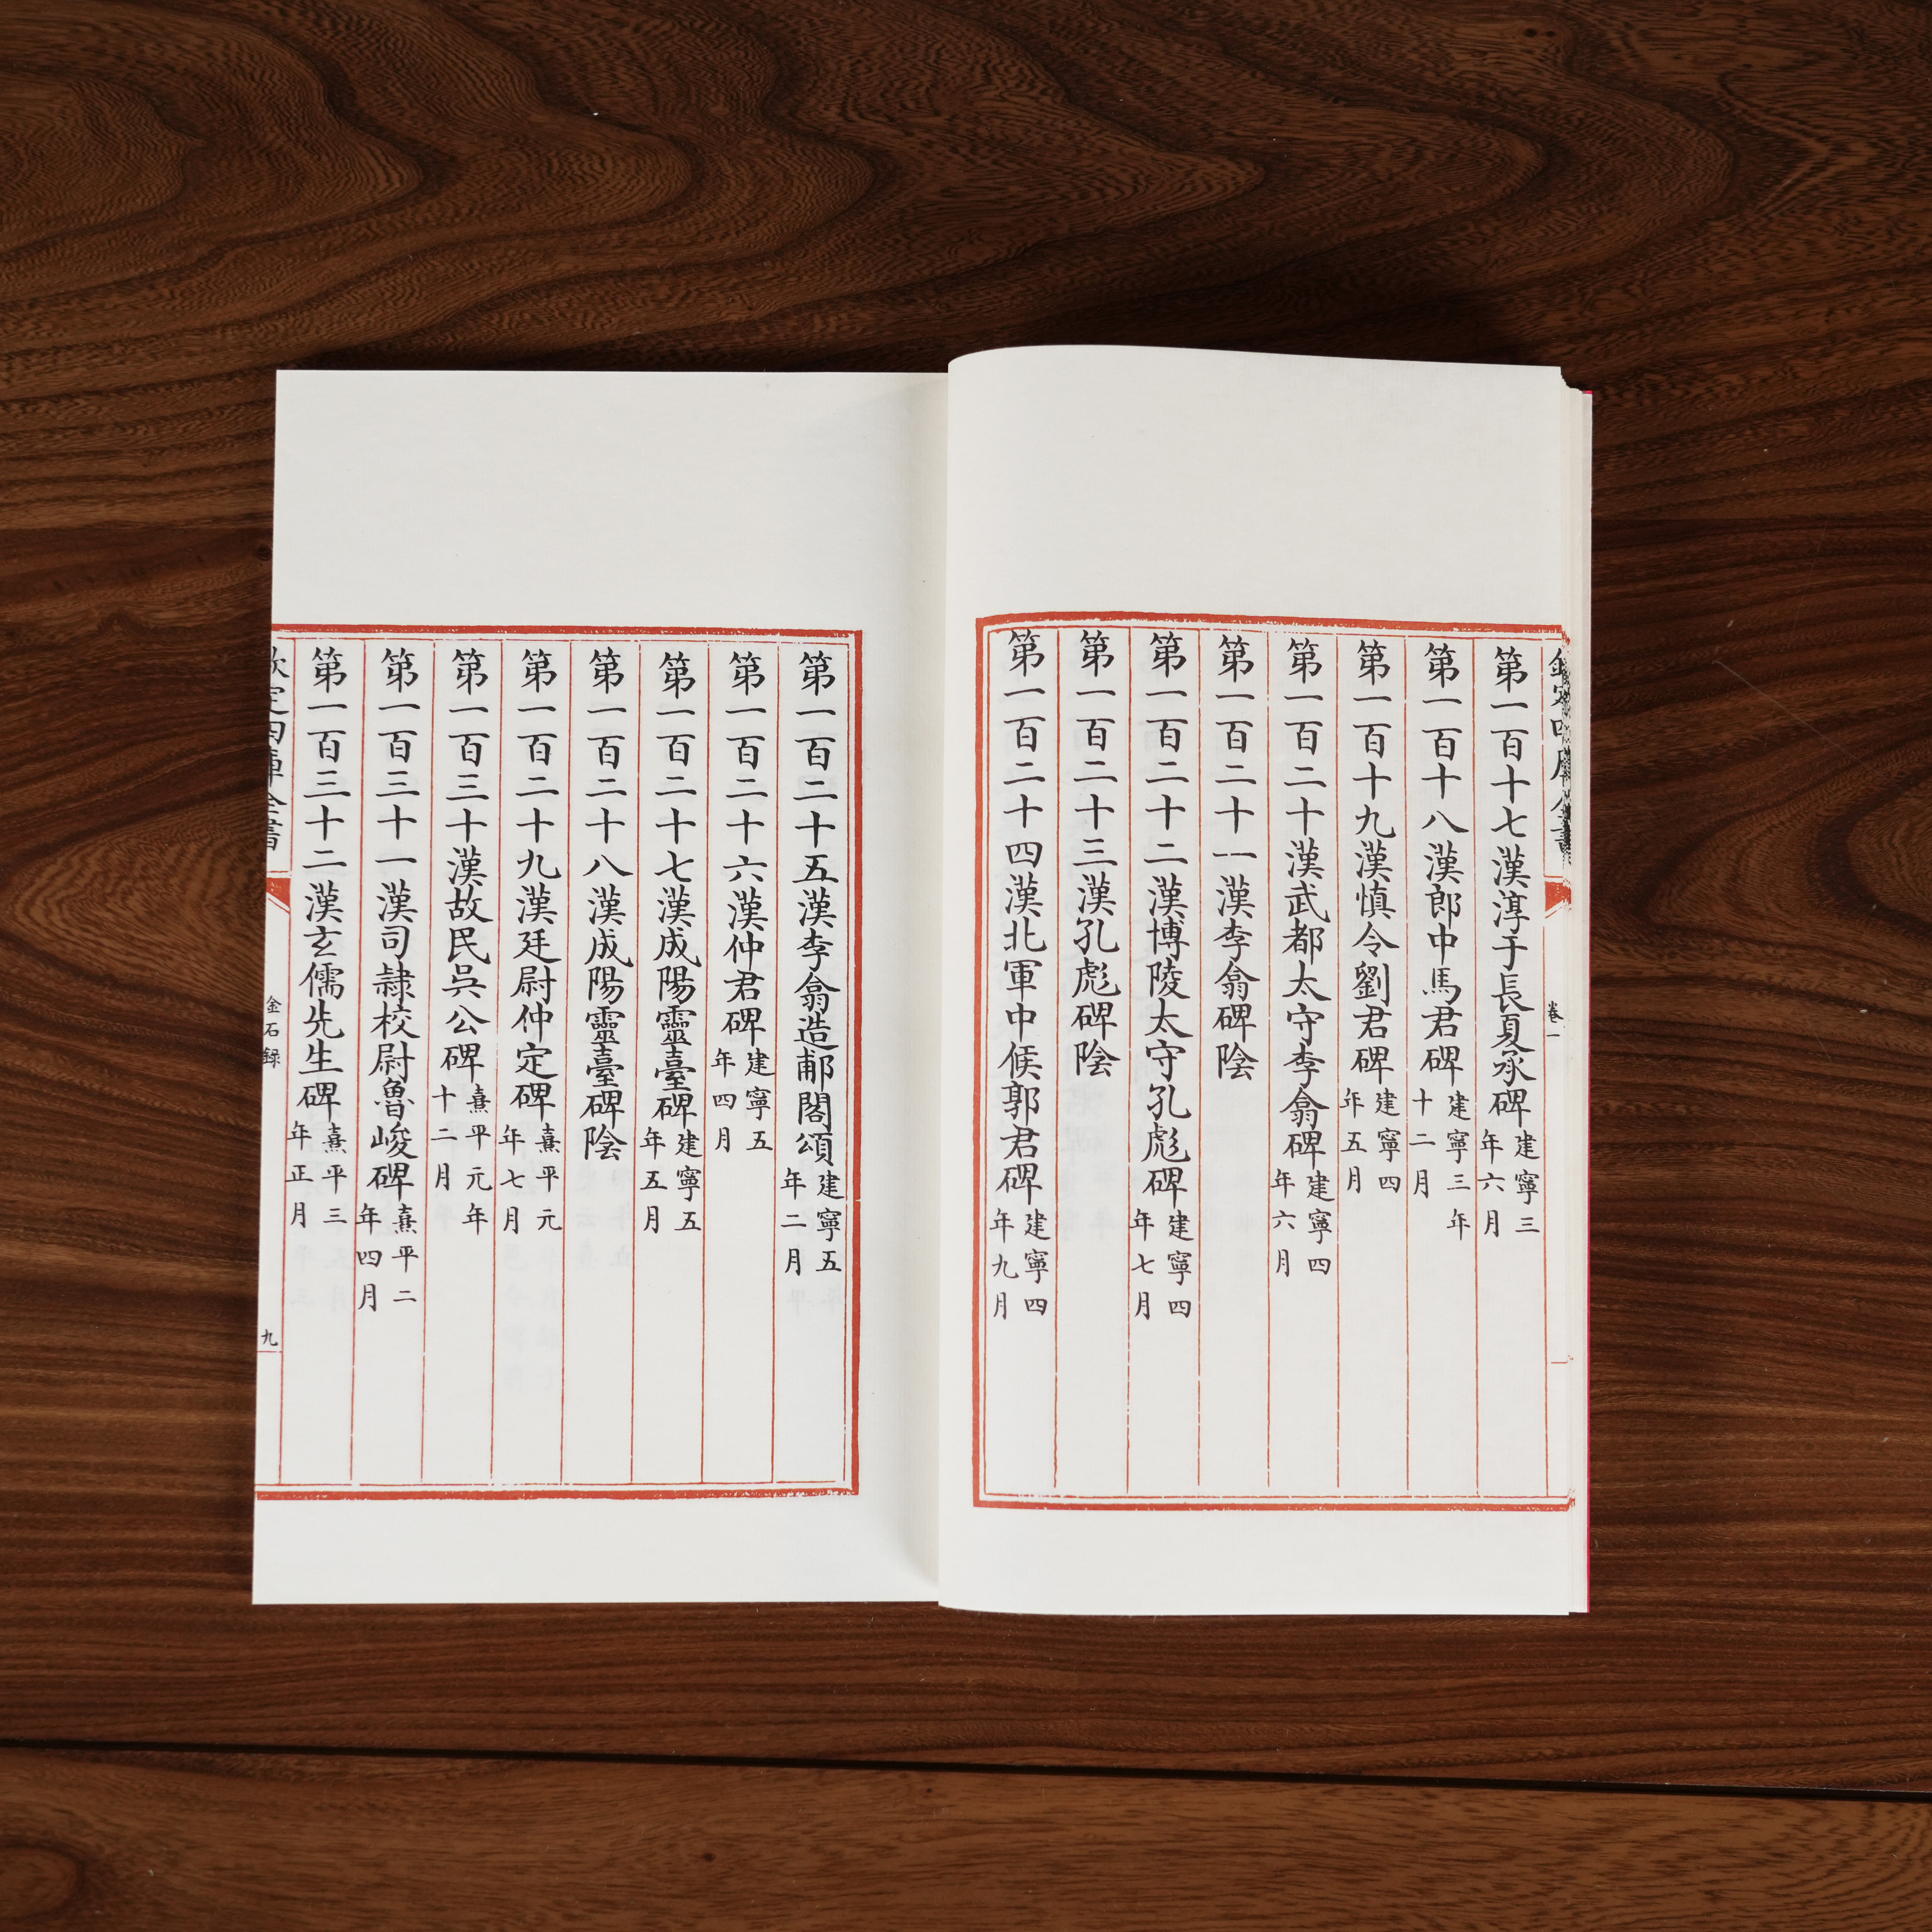 欽定四庫全書
卷一
第一百十七漢淳于長夏承碑建寧三年六月
第一百十八漢郎中馬君碑建寧三年十二月
第一百十九漢慎令劉君碑建寧四年五月
第一百二十漢武都太守李翕碑建寧四年六月
第一百二十一漢李翕碑陰
第一百二十二漢博陵太守孔彪碑建寧四年七月
第一百二十三漢孔彪碑陰
第一百二十四漢北軍中候郭君碑建寧四年九月
第一百二十五漢李翕造郙閣頌建寧五年二月
第一百二十六漢仲君碑建寧五年四月
第一百二十七漢成陽靈臺碑建寧五年五月
第一百二十八漢成陽靈臺碑陰
第一百二十九漢廷尉仲定碑熹平元年七月
第一百三十漢故民吳公碑熹平元年十二月
第一百三十一漢司隷校尉魯峻碑熹平二年四月
第一百三十二漢玄儒先生碑熹平三年正月
欽定四庫全書
金石録
九